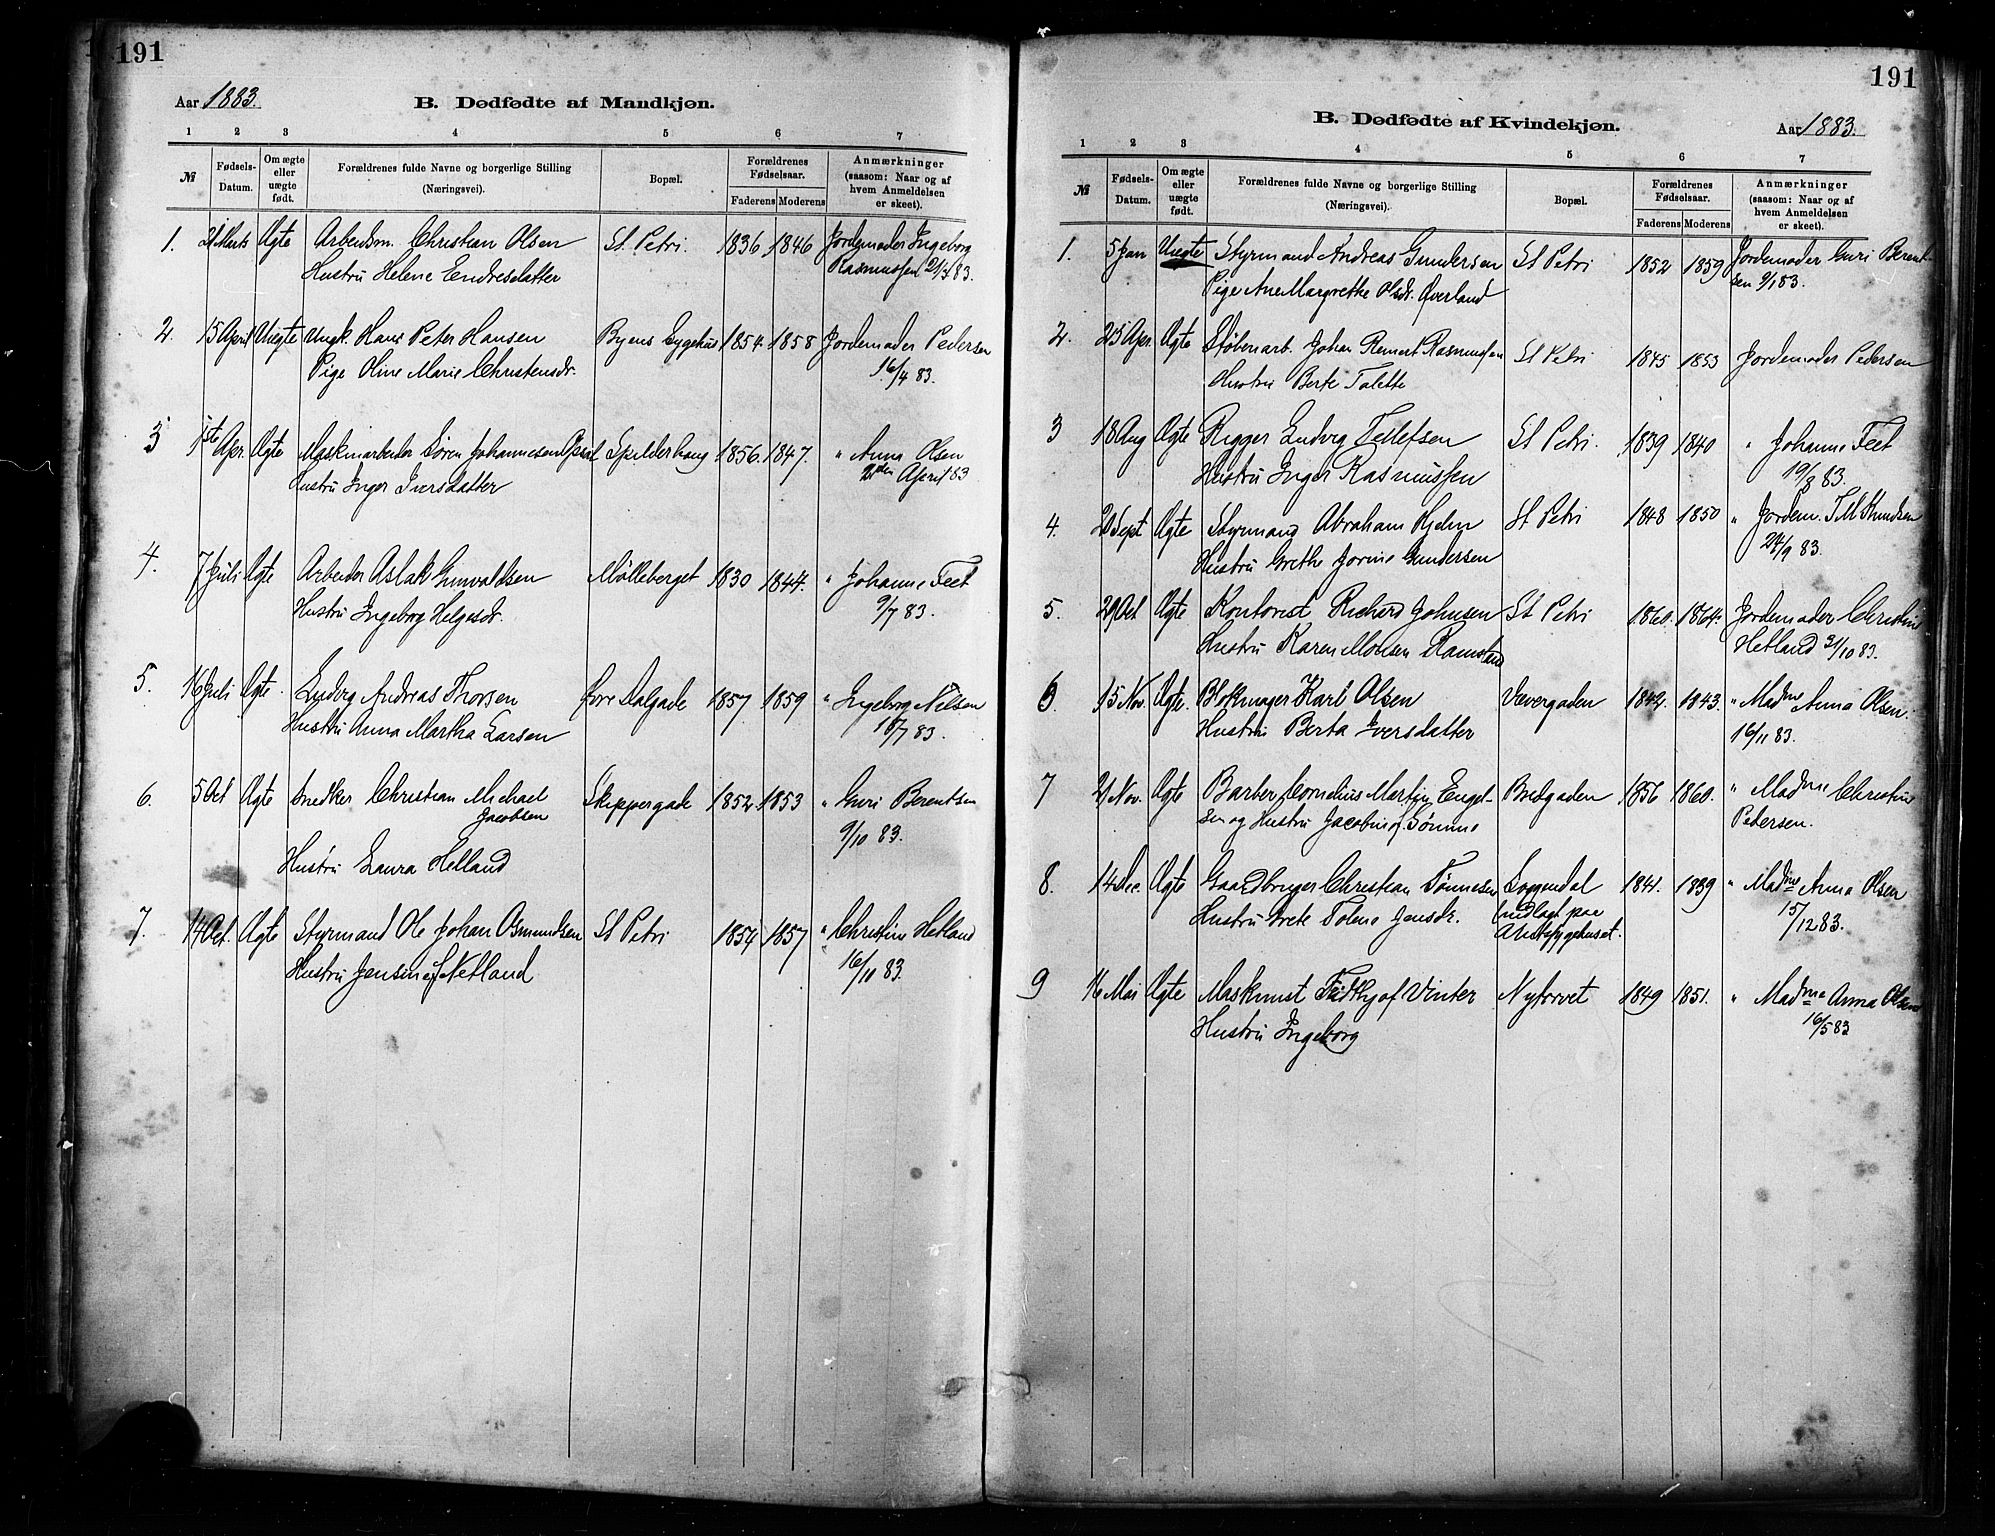 191
Aar 1883.
B. Dødfødte af Mandkjøn.
1 2 3 4 5 6 7
№
Fødsels-
Datum.
Om ægte
eller
uægte
født.
Forældrenes fulde Navne og borgerlige Stilling
(Næringsvei).
Bopæl.
Forældrenes
Fødselsaar.
Faderens Moderens
Anmærkninger
(saasom: Naar og af
hvem Anmeldelsen
er skeet).
1. 21 Marts Ægte Arbeidsm. Christian Olsen St. Petri 1836 1846 Jordemoder Ingeborg
Hustru Helene Endresdatter Rasmussen 83.
2. 15 April Uægte Ungk. Hans Peter Hansen Byens Sygehus 1854 1858 Jordemoder Pedersen
Pige Oline Marie Christensdr. 16/4 83.
3 1ste Apr. Ægte Maskinarbeider Søren Johannesen Spilderhaug 1856. 1847. " Anna Olsen
Hustru Inger Iversdatter 2den April 83
4. 7 Juli Ægte Arbeider Aslak Gunvaldsen Mølleberget 1830 1844. " Johanne Feet
Hustru Ingeborg Helgesdr. 9/7 83.
5. 16 Juli Ægte. Ludvig Andreas Thorsen Øvre Dalgade 1857 1859 " Ingeborg Nilsen
Hustru Anna Martha Larsen 18/7 83.
6. 5 Oct Ægte Snedker Christian Michael Skippergade 1852 1853 " Guri Berentsen
Jacobsen 9/10 83.
Hustru Laura Helland
7. 14 Oct. Ægte Styrmand Ole Johan Osmundsen St Petri 1854 1857 " Christine Hetland
Hustru Jensine f. Netland 16/11 83.
191
B. Dødfødte af Kvindekjøn.
Aar 1883.
1 2 3 4 5 6 7
№
Fødsels-
Datum.
Om ægte
eller
uægte
født.
Forældrenes fulde Navne og borgerlige Stilling
(Næringsvei).
Bopæl.
Forældrenes
Fødselsaar.
Faderens Moderens
Anmærkninger
(saasom: Naar og af
hvem Anmeldelsen
er skeet).
1. 5 Jan Uægte Styrmand Andreas Gundersen St Petri 1852 1859 Jordemoder Guri Berent-
Pige Ane Margrethe Olsdr. Øverland sen 9/1 83.
2. 25 Apr. Ægte Støbearb. Johan Reinert Rasmussen St Petri 1845 1853 Jordemoder Pedersen
Hustru Berte Talette
3 18 Aug Ægte Rigger Ludvig Tellefsen St Petri. 1839 1840 " Johanne Feet
Hustru Inger Rasmussen 19/8 83.
4. Sept Ægte Styrmand Abraham Hjelm St Petri 1848 1850 " Jordem. T M Knudsen
Hustru Grethe Jorine Gundersen 24/9 83.
5. 29 Oct Ægte Kontorist Richard Johnsen St Petri 1860. 1864. Jordemoder Christine
Hustru Karen Monsen Ramsland Hetland 31/10 83.
6. 15 Nov. Ægte. Blokmager Karl Olsen Vævergaden 1842. 1843. " Madme Anna Olsen.
Hustru Berta Iversdatter 16/11 83.
7 21 Nov. Ægte Barber Cornelius Martin Engel- Bredgaden 1856 1860. " Madme Christine
sen og Hustru Jacobine f. Sømme Pedersen.
8. 14 Dec. Ægte Gaardbruger Christian Tønnesen Soggendal 1841. 1839 " Madme Anna Olsen
Hustru Grete Tolene Jensdr. indlagt paa 15/12 83.
Amtssygehuset.
9 16 Mai Ægte Maskinist Fridthjof Vinter Nytorvet 1849 1851. " Madme Anna Olsen
Hustru Ingeborg 16/5 83